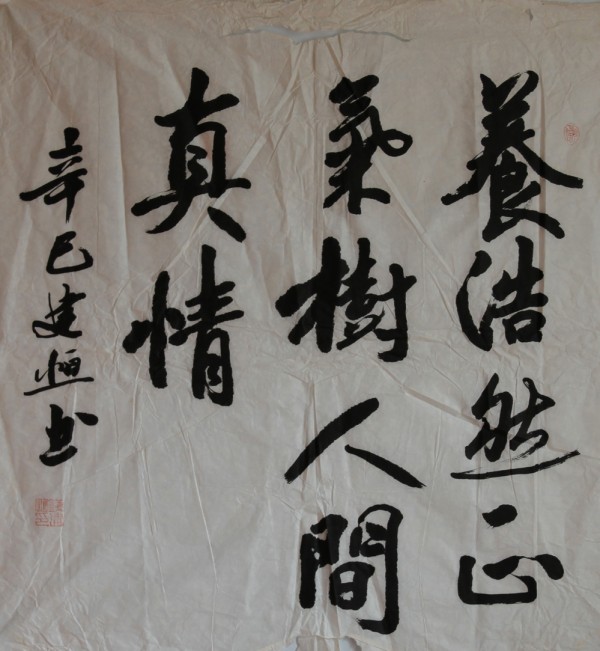 養浩然正
氣樹人間
真情
辛巳建恒书